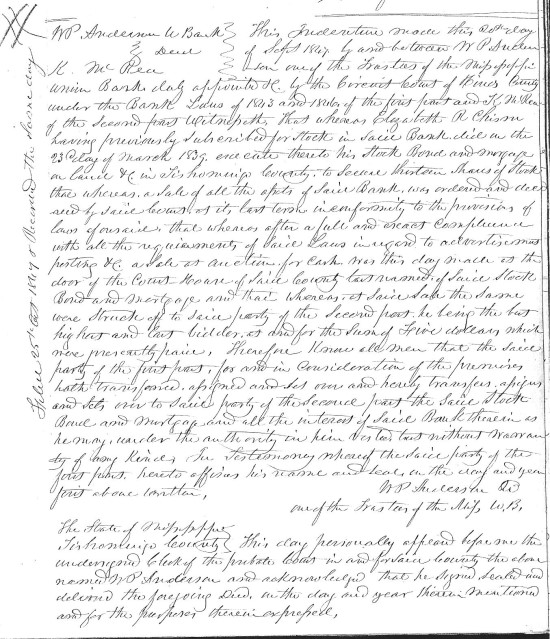 WP Anderson U Bank
& Deed
K. McRea
This Indenture made this 20th day
of Sept 1847. by and between W P Ander
son one of the Trustees of the Mississippi
union Bank duly appointed &c by the Circuit Court of Hinds County
under the Bank Laws of 1843 and 1846 of the first part and K McRea
of the second part Witnesseth, that whereas Elizabeth R Chism
having previously subscribed for Stock in said Bank did on the
23d day of March 1839. execute thereto his Stock Bond and mortgage
on land &c in Tishomingo County, to secure thirteen shares of Stock
that whereas, a sale of all the assets of said Bank, was ordered and decr
eed by said Court, at its last term in conformity to the provisions of
laws aforesaid, that whereas after a full and exact compliance
with all the requirements of said Laws in regard to advertisement
posting &c. a sale at auction, for cash was this day made at the
door of the Court House of said County last named, of said Stock
Bond and mortgage and that whereas, at said sale the same
were struck off to said party of the second part, he being the but
highest and last bidder, at and for the sum of Five dollars which
were presently paid, Therefore Know all men that the said
party of the first part, for and in consideration of the premises
hath transferred, assigned and set over and hereby transfers, assigns
and sets over to said party of the second part the said Stock
Bond and mortgage and all the interest of said Bank therein as
he may, under the authority in him vested but without Warran
ty of any kind. In Testimony whereof the said party of the
first part, hereto affixes his name and seal, on the day and year
first above written,
WP Anderson
one of the Trustees of the Miss, U. B,
The State of Mississippi
Tishomingo County
This day personally appeard before me the
undersigned Clerk of the probate Court in and for said County the above
named WP Anderson and acknowledged that he signed sealed and
deliverd the foregoing Deed, on the day and year therein mentioned
and for the purposes therein expressed,
Filed 20th Sept 1847 & Recorded the same day